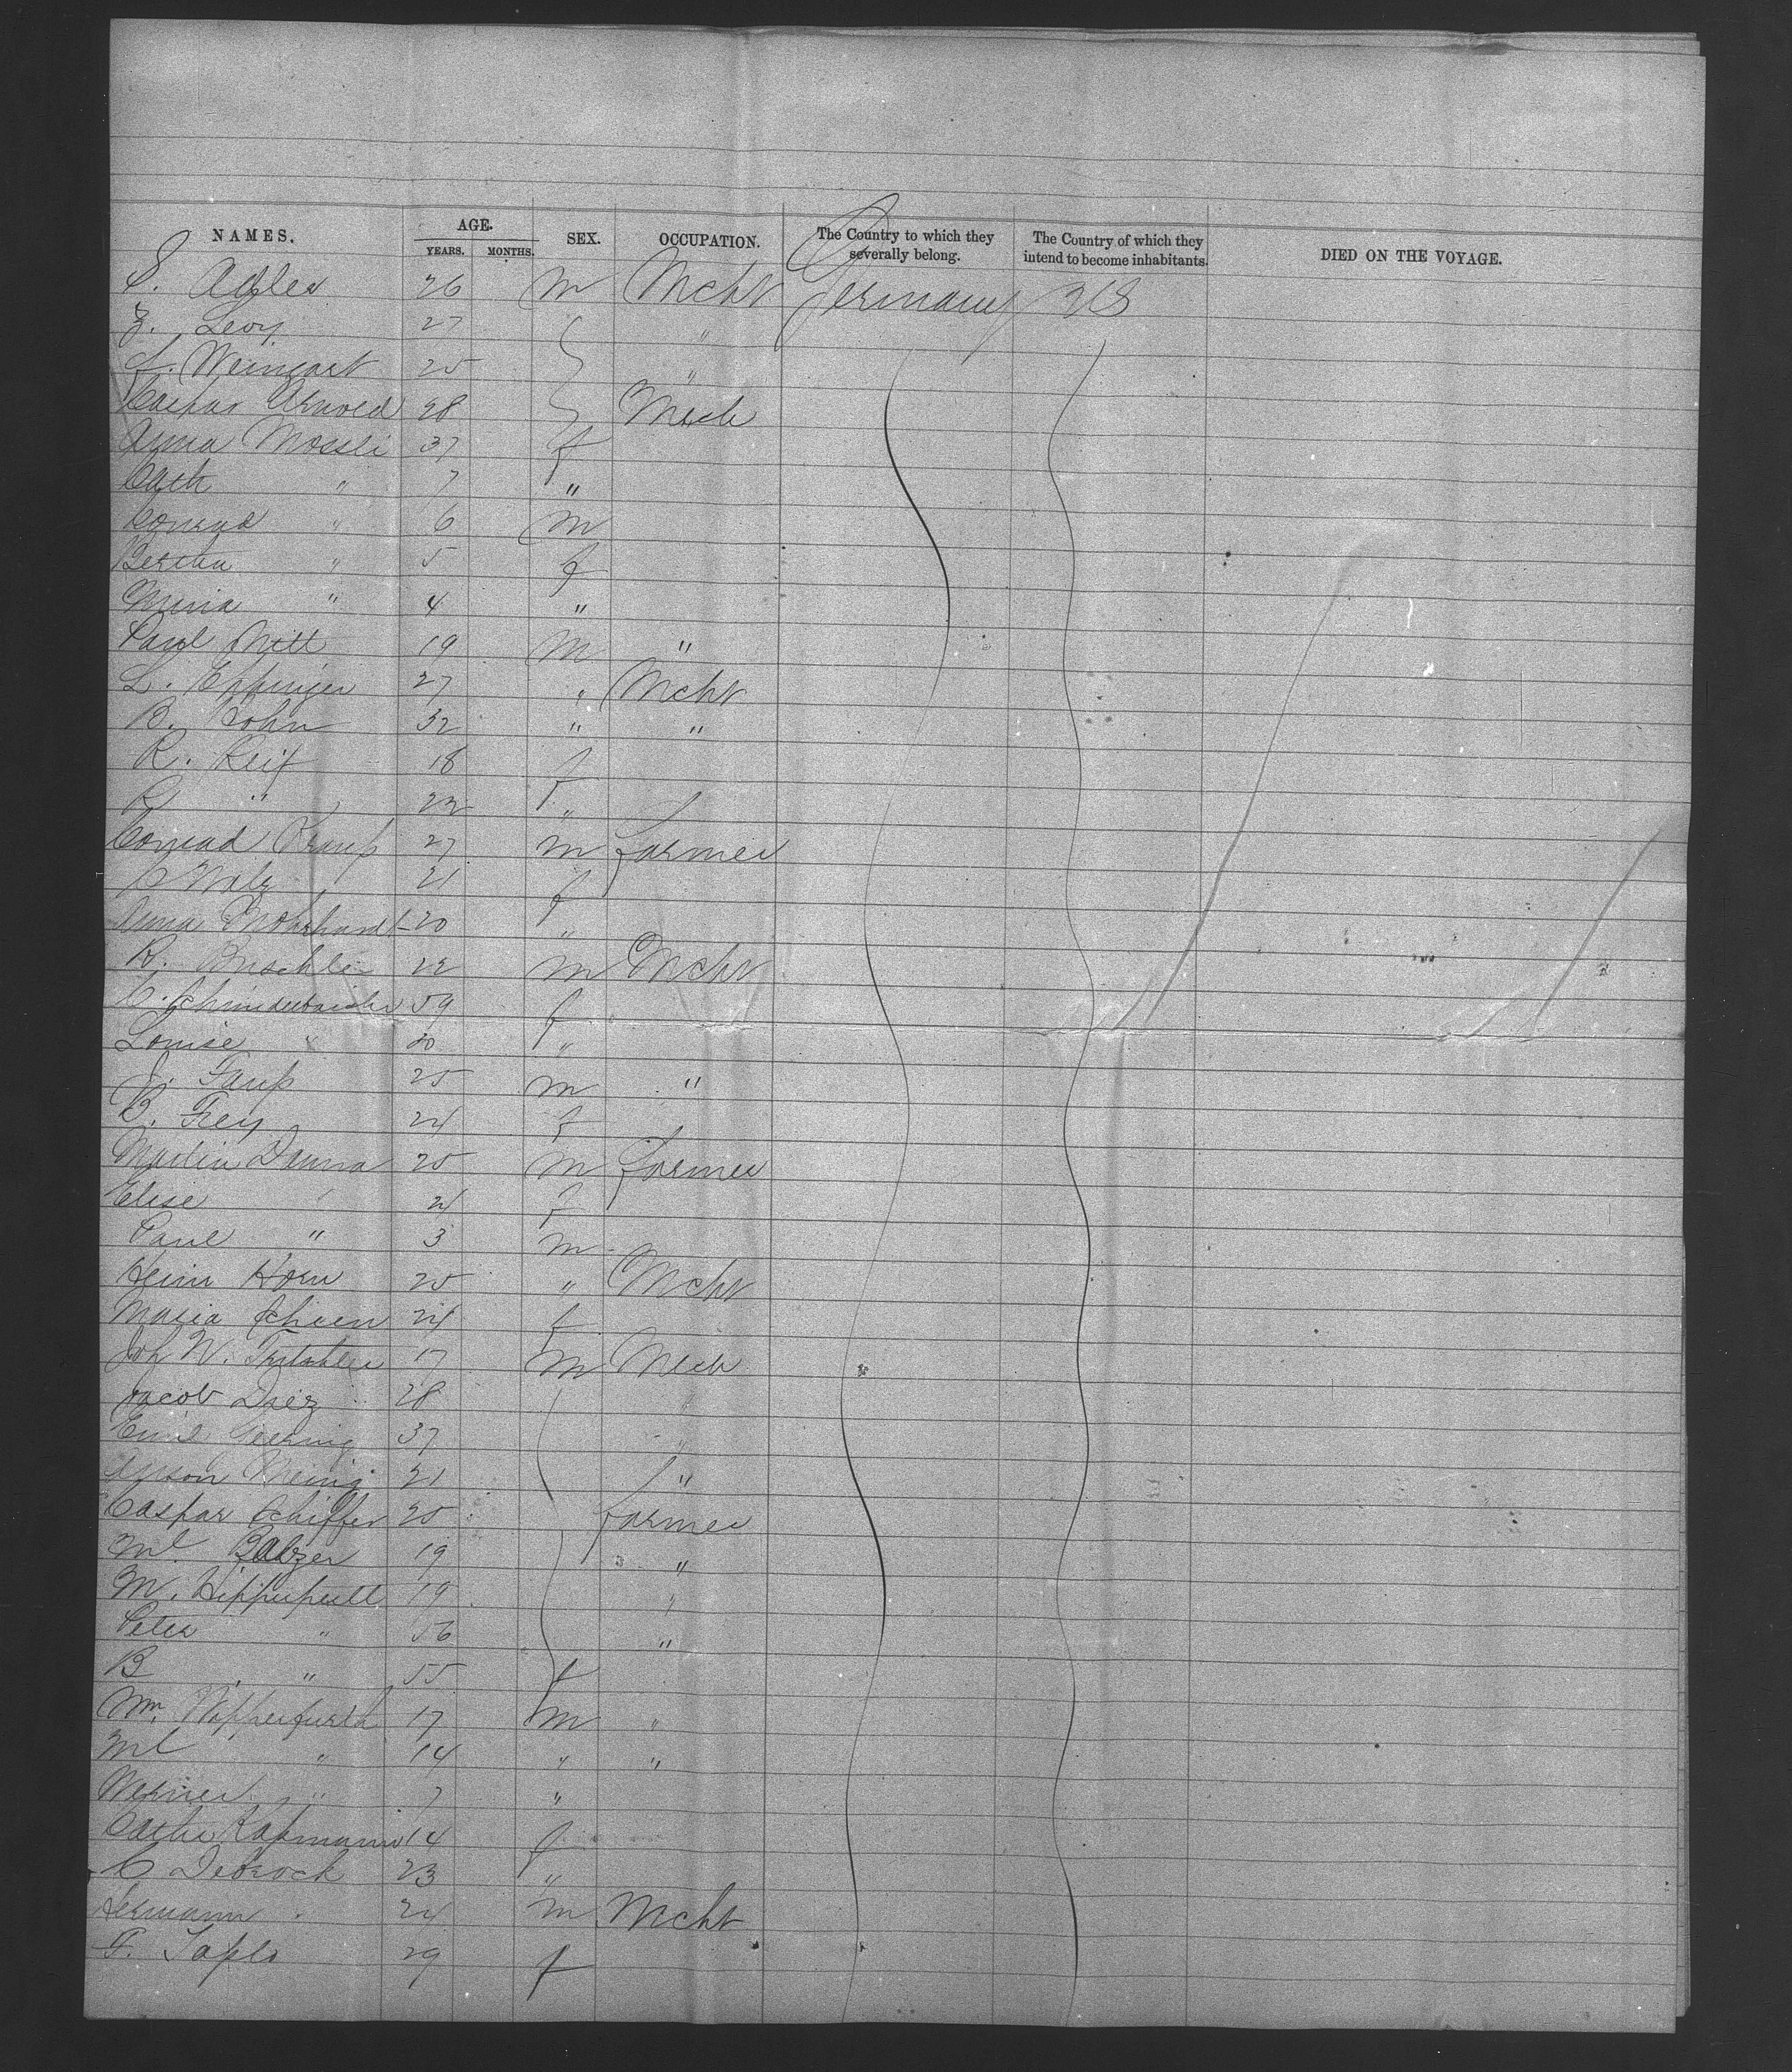 NAMES. AGE. YEARS. MONTHS. SEX. OCCUPATION. The Country to which they severally belong. The Country of which they intend to become inhabitants. DIED ON THE VOYAGE.
S. Adler 26 m Mcht Germany US
Levy 27 "
Weingart 25 "
Caspar Arnold 28 Mech
Anna Mossli 37 f
Cath " 7 "
Conrad " 6 m
Bertha " 5 f
Maria " 4 "
Paul Will 19 m "
L. Eppinger 27 " Mcht
B. Cohn 32 " "
R. Reif 18 f
R " 22 "
Conrad Krauss 27 m Farmer
Walz 21 f
Anna Mohrhardt 20 "
R. Buschler 22 m Mcht
C. 59 f
Louise " 20 "
J. Faup 25 m "
B. Frey 24 f
Martin Danna 25 m Farmer
Elise 21 f
Paul " 3 m
Heinr Horn 25 " Mcht
Maria Schoen 24 f
Joh W. 17 m Mech
Jacob Diez 28 "
Emil Gehring 37 "
21 "
Caspar Schiffer 25 Farmer
Ml Balzer 19 "
M. Hipperfull 19 "
Peter " 56 "
B " 55 f
Wm. Wipperfurth 17 m "
Ml " 14 " "
Werner " 7 "
Cathe Kapmann 14 f
C Debrock 23 "
Hermann " 24 m Mcht
F. Saplo 29 f